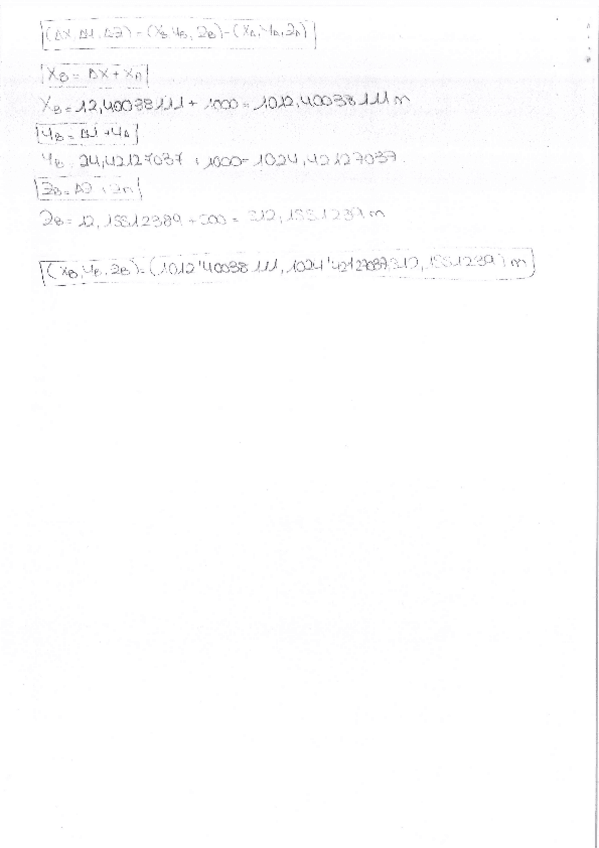 (ΔX, ΔY, ΔZ) = (XB, YB, ZB) - (XA, YA, ZA)
XB = ΔX + XA
XB = 12,40038111 + 1000 = 1012,40038111 m
YB = ΔY + YA
YB = 24,42127037 + 1000 = 1024,42127037
ZB = ΔZ + ZA
ZB = 12,15512389 + 300 = 312,1551239 m
(XB, YB, ZB) = (1012'40038111, 1024'42127037 312,1551239) m